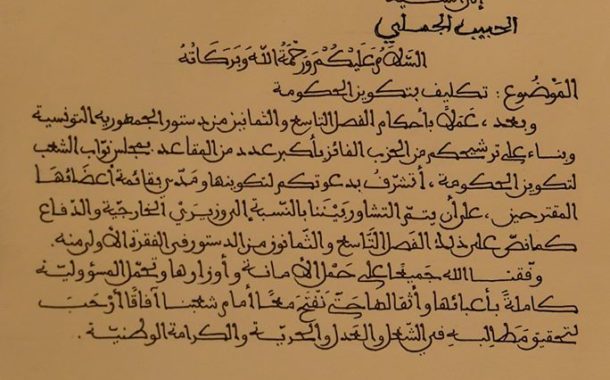 إلى السيد
الحبيب الجملي
السلام عليكم ورحمة الله وبركاته
الموضوع : تكليف بتكوين الحكومة
وبعد، عملا بأحكام الفصل التاسع والثمانين من دستور الجمهورية التونسية
وبناء على ترشيحكم من الحزب الفائز بأكبر عدد من المقاعد بمجلس نواب الشعب
لتكوين الحكومة، أتشرف بدعوتكم لتكوينها ومدي بقائمة أعضائها
المقترحين، على أن يتم التشاور بيننا بالنسبة إلى وزيري الخارجية والدفاع
كما نص على ذلك الفصل التاسع والثمانون من الدستور في الفقرة الأولى منه.
وفقنا الله جميعا على حمل الأمانة وأوزارها وتحمل المسؤولية
كاملة بأعبائها وأثقالها حتى نفتح معا أمام شعبنا آفاقا أرحب
لتحقيق مطالبه في الشغل والعدل والحرية والكرامة الوطنية.